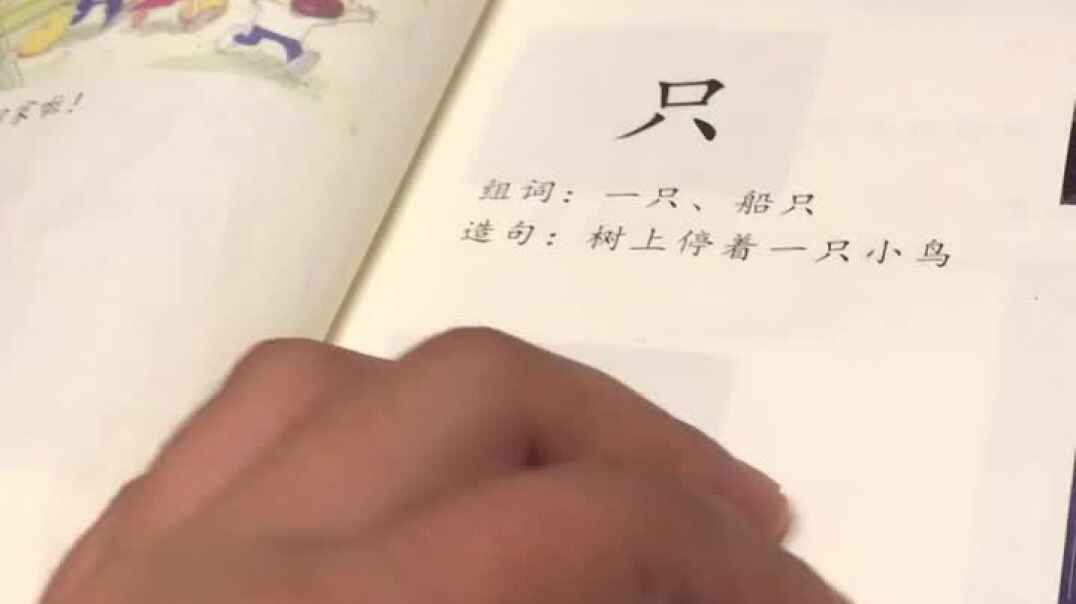 家啦!
只
组词：一只、船只
造句：树上停着一只小鸟